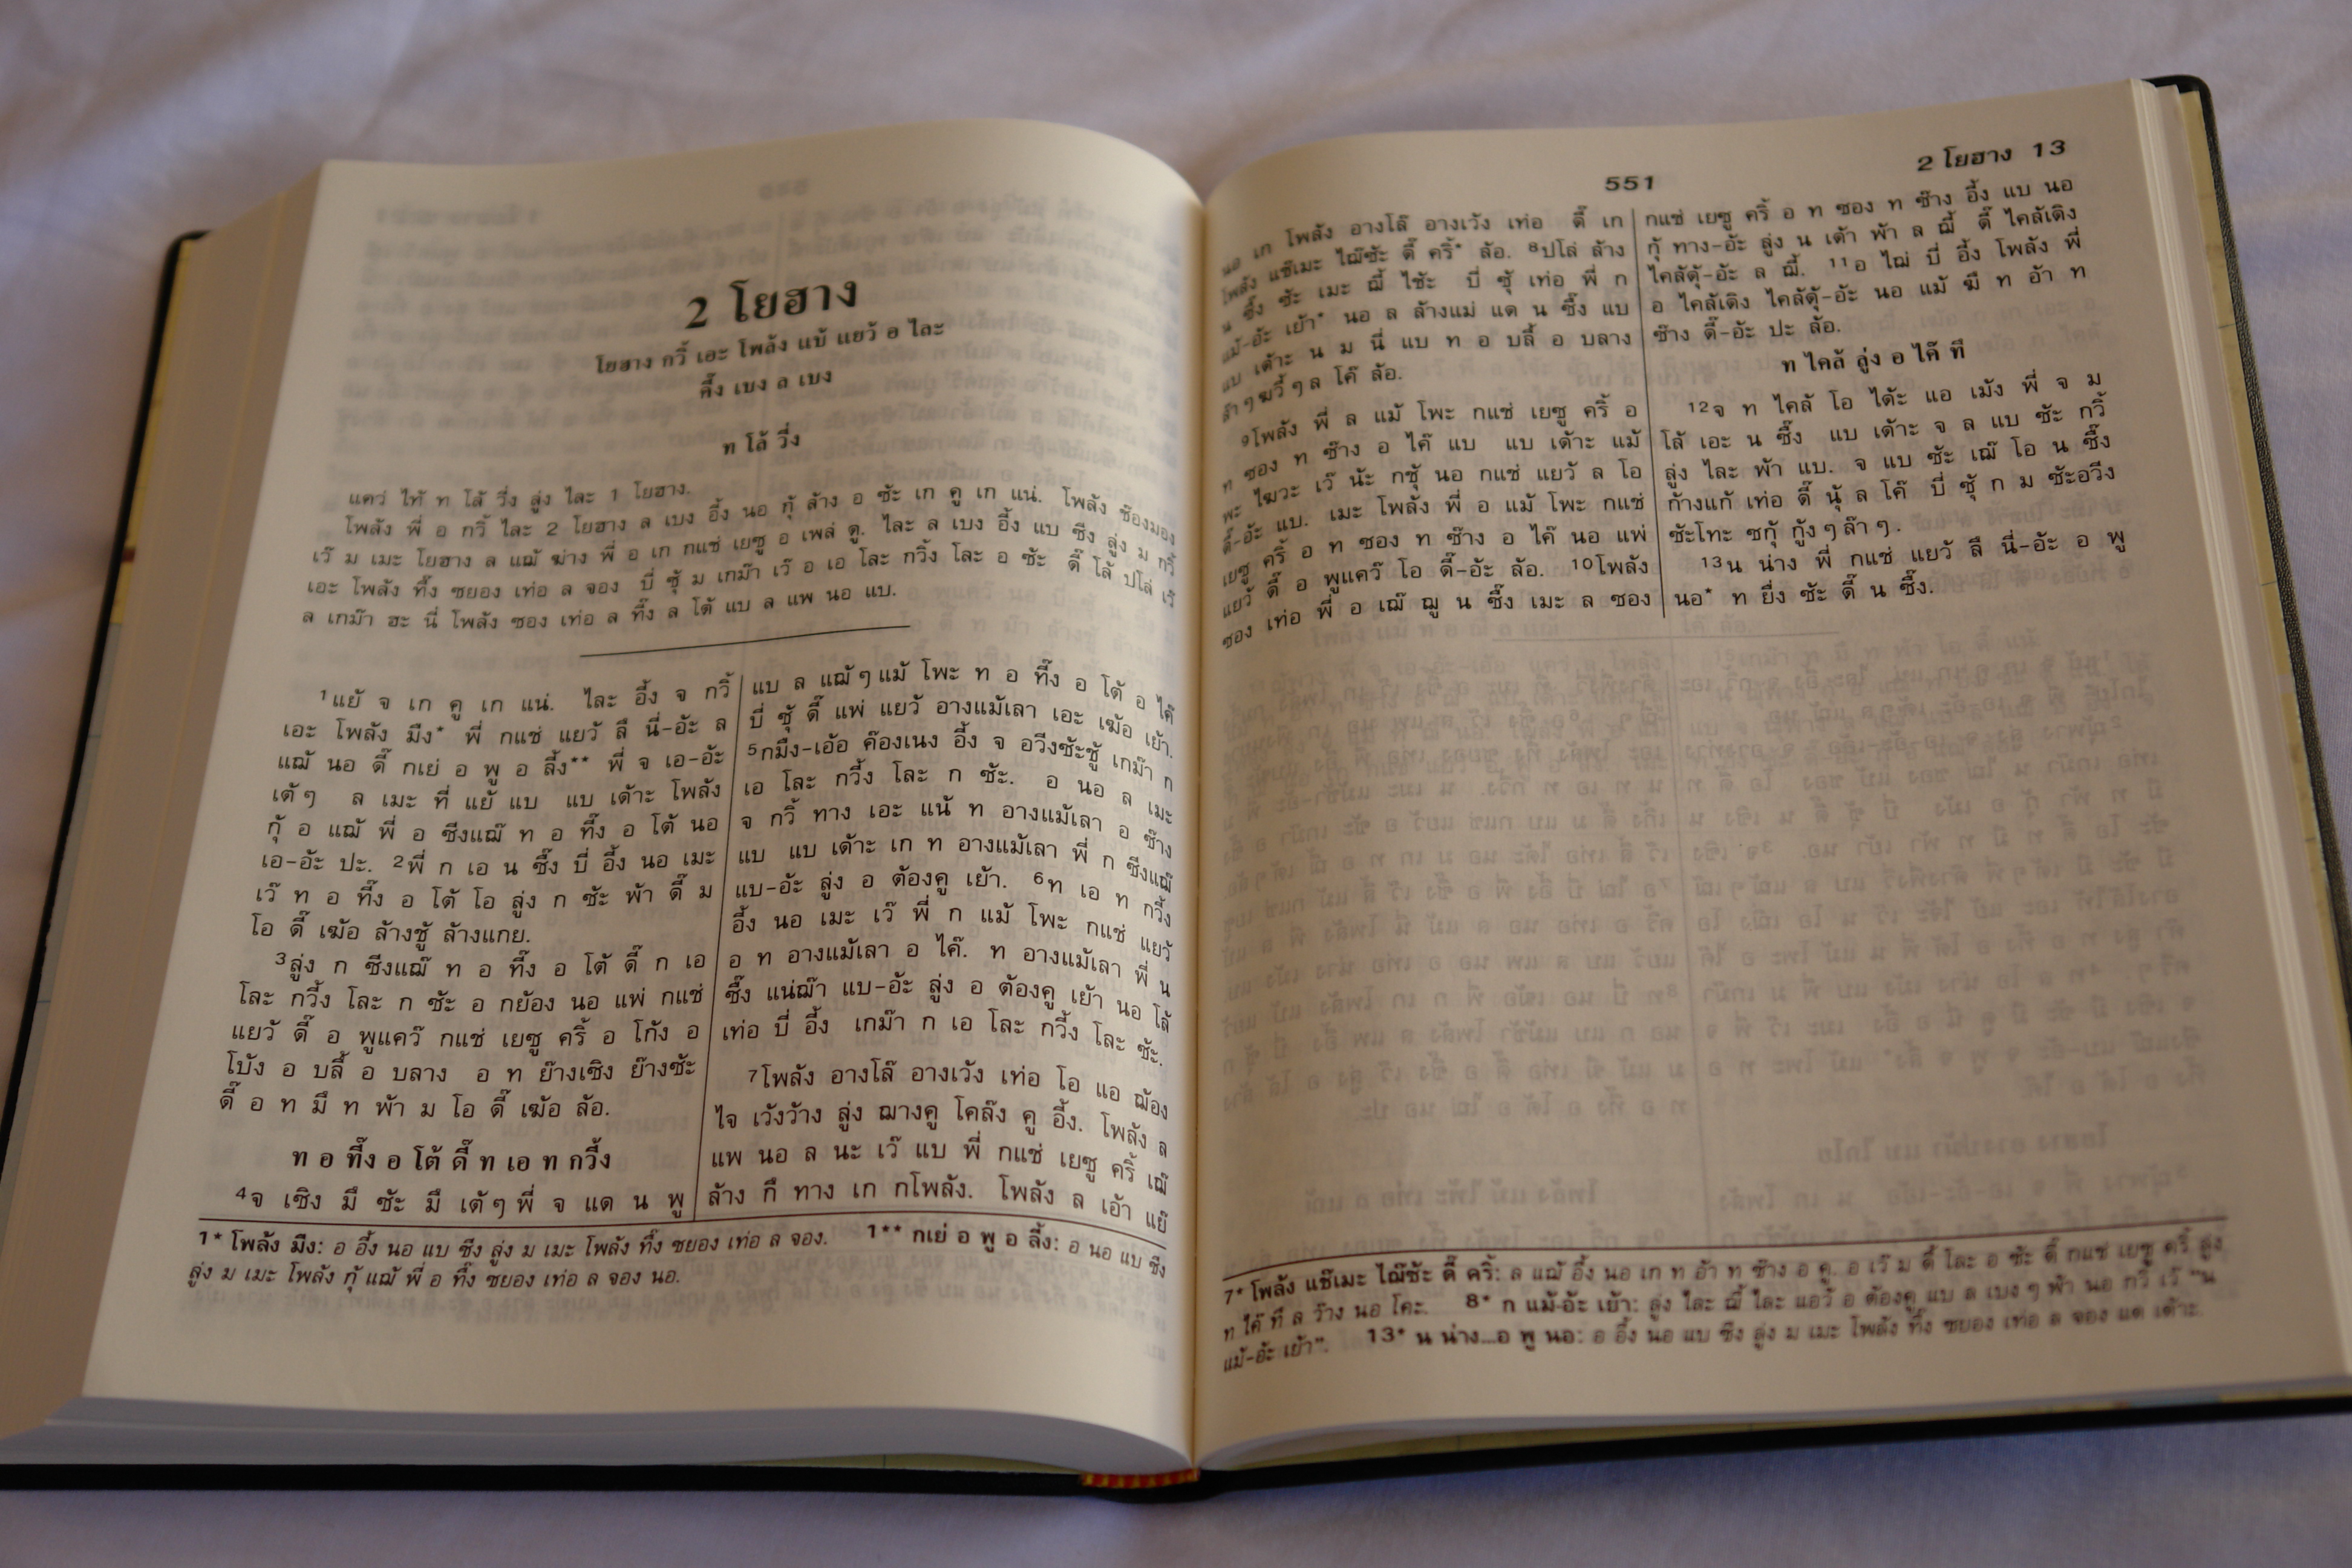 2 โยฮาง
โยฮาง กวี้ เอะ โพลัง แบ้ แยว้ อ ไละ
คึ้ง เบง ล เบง
ท โล้ วึ่ง
แคว่ ไท้ ท โล้ วึ่ง สู่ง ไละ 1 โยฮาง.
โพลัง พี่ อ กวี้ ไละ 2 โยฮาง ล เบง อี้ง นอ กุ้ ล้าง อ ซ้ะ เก คู เก แน่. โพลัง ซ้องมอง
เว้ ม เมะ โยฮาง ล แฌ้ ฆ่าง พี่ อ เก กแช่ เยซู อ เพล่ ดู. ไละ ล เบง อี้ง แบ ซึง สู่ง ม กวี้
เอะ โพลัง ทึ้ง ซยอง เท่อ ล จอง บี่ ซุ้ ม เกม๊า เว้ อ เอ โละ กวี้ง โละ อ ซ้ะ ดี๊ โล้ ปโล่ เร้
ล เกม๊า ฮะ นี่ โพลัง ซอง เท่อ ล ทึ้ง ล โต้ แบ ล แพ นอ แบ.
1แย้ จ เก คู เก แน่. ไละ อี้ง จ กวี้
เอะ โพลัง มึง* พี่ กแช่ แยว้ ลี นี่-อ้ะ ล
แฌ้ นอ ดี๊ กเย่ อ พู อ ลี้ง** พี่ จ เอ-อ้ะ
เต้ๆ ล เมะ ที่ แย้ แบ แบ เด้าะ โพลัง
กุ้ อ แฌ้ พี่ อ ซีงแฌ๊ ท อ ทึ้ง อ โต้ นอ
เอ-อ้ะ ปะ. 2พี่ ก เอ น ซึ้ง บี่ อี้ง นอ เมะ
เว๊ ท อ ทึ้ง อ โต้ โอ สู่ง ก ซ้ะ พ้า ดี๊ ม
โอ ดี๊ เฆ้อ ล้างชู้ ล้างแกย.
3สู่ง ก ซีงแฌ๊ ท อ ทึ้ง อ โต้ ดี๊ ก เอ
โละ กวี้ง โละ ก ซ้ะ อ กย้อง นอ แพ่ กแช่
แยว้ ดี๊ อ พูแคว๊ กแช่ เยซู ครี้ อ โก้ง อ
โบ้ง อ บลี้ อ บลาง อ ท ย๊างเชิง ย๊างซ้ะ
ดี๊ อ ท มี ท พ้า ม โอ ดี๊ เฆ้อ ล้อ.
ท อ ทึ้ง อ โต้ ดี๊ ท เอ ท กวี้ง
4จ เชิง มี ซ้ะ มี เต้ๆ พี่ จ แด น พู
แบ ล แฌ้ๆ แม้ โพะ ท อ ทึ้ง อ โต้ อ ไค๊
บี่ ซุ้ ดี๊ แพ่ แยว้ อางแม้เลา เอะ เฆ้อ เย้า.
5กมึง-เอ้อ ค๊องเนง อี้ง จ อวีงซ้ะชู้ เกม๊า ก
เอ โละ กวี้ง โละ ก ซ้ะ. อ นอ ล เมะ
จ กวี้ ทาง เอะ แน้ ท อางแม้เลา อ ซ๊าง
แบ แบ เด้าะ เก ท อางแม้เลา พี่ ก ซีงแฌ๊
แบ-อ้ะ สู่ง อ ต้องคู เย้า. 6ท เอ ท กวี้ง
อี้ง นอ เมะ เว๊ พี่ ก แม้ โพะ กแช่ แยว้
อ ท อางแม้เลา อ ไค๊. ท อางแม้เลา พี่ น
ซึ้ง แน่ฌ๊า แบ-อ้ะ สู่ง อ ต้องคู เย้า นอ โล้
เท่อ บี่ อี้ง เกม๊า ก เอ โละ กวี้ง โละ ซ้ะ.
7โพลัง อางโล๊ อางเว้ง เท่อ โอ แอ ฌ้อง
ไจ เว้งว้าง สู่ง ฌางคู โคล๊ง คู อี้ง. โพลัง ล
แพ นอ ล นะ เว๊ แบ พี่ กแช่ เยซู ครี้ เฌ๊
ล้าง กี ทาง เก กโพลัง. โพลัง ล เอ้า แย๊
1* โพลัง มึง: อ อี้ง นอ แบ ซึง สู่ง ม เมะ โพลัง ทึ้ง ซยอง เท่อ ล จอง. 1** กเย่ อ พู อ ลี้ง: อ นอ แบ ซึง
สู่ง ม เมะ โพลัง กุ้ แฌ้ พี่ อ ทึ้ง ซยอง เท่อ ล จอง นอ.
551
2 โยฮาง 13
นอ เก โพลัง อางโล๊ อางเว้ง เท่อ ดี๊ เก
โพลัง แช๊เมะ ไฌ๊ซ้ะ ดี๊ ครี้* ล้อ. 8ปโล่ ล้าง
น ซึ้ง ซ้ะ เมะ ฌี้ ไช้ะ บี่ ซุ้ เท่อ พี่ ก
แม้-อ้ะ เย้า* นอ ล ล้างแม่ แด น ซึ้ง แบ
แบ เด้าะ น ม นี่ แบ ท อ บลี้ อ บลาง
ล้าๆฆวี้ๆ ล โค๊ ล้อ.
9โพลัง พี่ ล แม้ โพะ กแช่ เยซู ครี้ อ
ท ซอง ท ซ๊าง อ ไค๊ แบ แบ เด้าะ แม้
พะ ไฆวะ เว๊ น้ะ กซุ้ นอ กแช่ แยว้ ล โอ
ดี๊-อ้ะ แบ. เมะ โพลัง พี่ อ แม้ โพะ กแช่
เยซู ครี้ อ ท ซอง ท ซ๊าง อ ไค๊ นอ แพ่
แยว้ ดี๊ อ พูแคว๊ โอ ดี๊-อ้ะ ล้อ. 10โพลัง
ซอง เท่อ พี่ อ เฌ๊ ฌู น ซึ้ง เมะ ล ซอง
กแช่ เยซู ครี้ อ ท ซอง ท ซ๊าง อี้ง แบ นอ
กุ้ ทาง-อ้ะ สู่ง น เด้า พ้า ล ฌี้ ดี๊ ไคล้เดิง
ไคล้ดุ้-อ้ะ ล ฌี้. 11อ ไฌ่ บี่ อี้ง โพลัง พี่
อ ไคล้เดิง ไคล้ดุ้-อ้ะ นอ แม้ ฆี ท อ้า ท
ซ๊าง ดี๊-อ้ะ ปะ ล้อ.
ท ไคล้ สู่ง อ ไค๊ ที
12จ ท ไคล้ โอ ได้ะ แอ เม้ง พี่ จ ม
โล้ เอะ น ซึ้ง แบ เด้าะ จ ล แบ ซ้ะ กวี้
สู่ง ไละ พ้า แบ. จ แบ ซ้ะ เฌ๊ โอ น ซึ้ง
ก้างแก้ เท่อ ดี๊ นุ้ ล โค๊ บี่ ซุ้ ก ม ซ้ะอวีง
ซ้ะโทะ ซกุ้ กู้งๆล๊าๆ.
13น น่าง พี่ กแช่ แยว้ ลี นี่-อ้ะ อ พู
นอ* ท ยี่ง ซ้ะ ดี๊ น ซึ้ง.
7* โพลัง แช๊เมะ ไฌ๊ซ้ะ ดี๊ ครี้: ล แฌ้ อี้ง นอ เก ท อ้า ท ซ้าง อ คู. อ เว๊ ม ดี๊ โละ อ ซ้ะ ดี๊ กแช่ เยซู ครี้ สู่ง
ท ไค๊ ที ล ว้าง นอ โคะ. 8* ก แม้-อ้ะ เย้า: สู่ง ไละ ฌี้ ไละ แอว้ อ ต้องคู แบ ล เบงๆ พ้า นอ กวี้ เว้ "น
แม้-อ้ะ เย้า". 13* น น่าง...อ พู นอ: อ อี้ง นอ แบ ซึง สู่ง ม เมะ โพลัง ทึ้ง ซยอง เท่อ ล จอง แด เด้าะ.